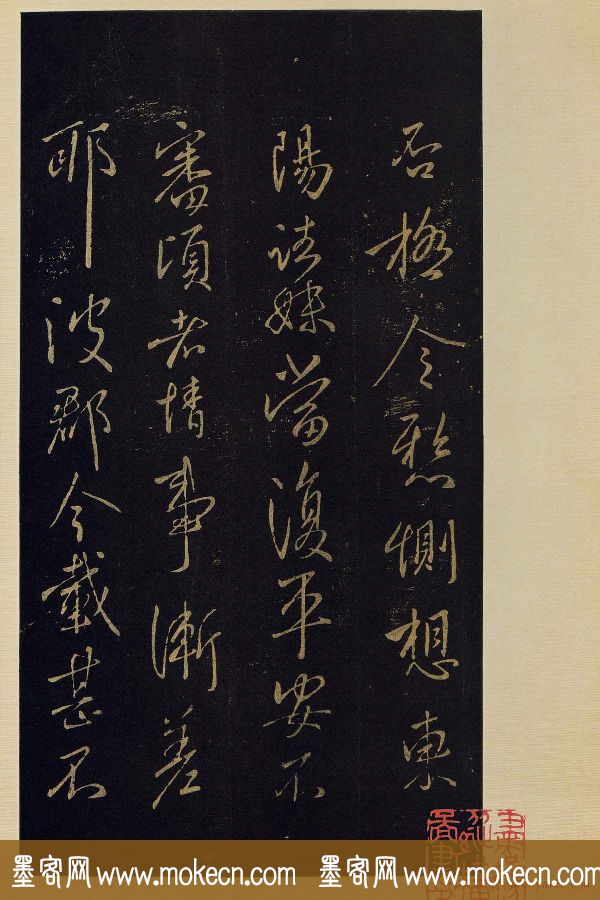 否極令愁惻想東
陽諸妹當復平安不
審頃者情事漸差
耶彼郡今載甚不
墨客网 www.mokecn.com 墨客网 www.mokecn.com